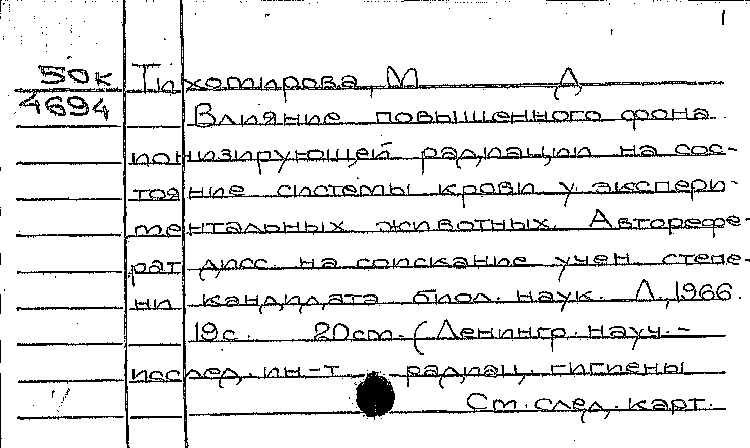 1
50к Тихомирова, М Д
4694 Влияние повышенного фона
ионизирующей радиации на сос-
тояние системы крови у экспери-
ментальных животных. Авторефе-
рат дисс. на соискание учен. степе-
ни кандидата биол. наук. Л., 1966.
19с. 20см. (Ленингр. науч.-
исслед. ин-т радиац. гигиены
См. след. карт.